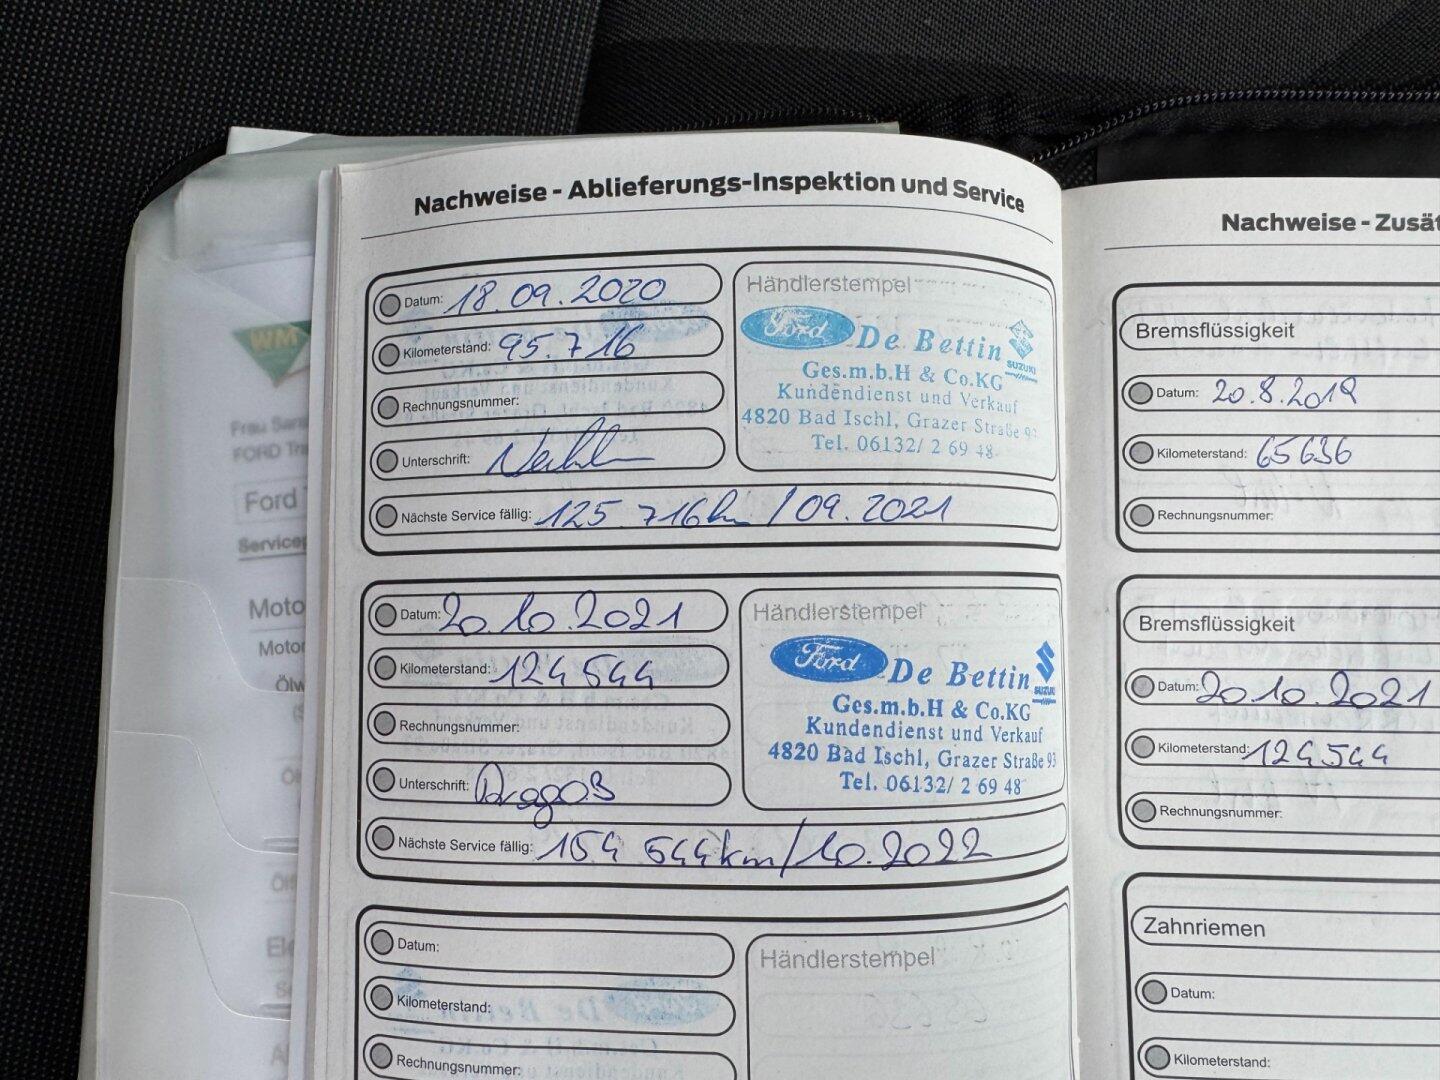 Nachweise - Ablieferungs-Inspektion und Service
Datum: 18.09.2020
Kilometerstand: 95.716
Rechnungsnummer:
Unterschrift:
Nächste Service fällig: 125.716km / 09.2021
Händlerstempel
Ford De Bettin SUZUKI
Ges.m.b.H & Co.KG
Kundendienst und Verkauf
4820 Bad Ischl, Grazer Straße 93
Tel. 06132/ 2 69 48
Datum: 20.10.2021
Kilometerstand: 124544
Rechnungsnummer:
Unterschrift:
Nächste Service fällig: 154 544km/10.2022
Händlerstempel
Ford De Bettin SUZUKI
Ges.m.b.H & Co.KG
Kundendienst und Verkauf
4820 Bad Ischl, Grazer Straße 93
Tel. 06132/ 2 69 48
Datum:
Kilometerstand:
Rechnungsnummer:
Händlerstempel
Nachweise - Zusät
Bremsflüssigkeit
Datum: 20.8.2018
Kilometerstand: 65636
Rechnungsnummer:
Bremsflüssigkeit
Datum: 20.10.2021
Kilometerstand: 124544
Rechnungsnummer:
Zahnriemen
Datum:
Kilometerstand:
WM
Frau
FORD
Ford
Moto
Motor